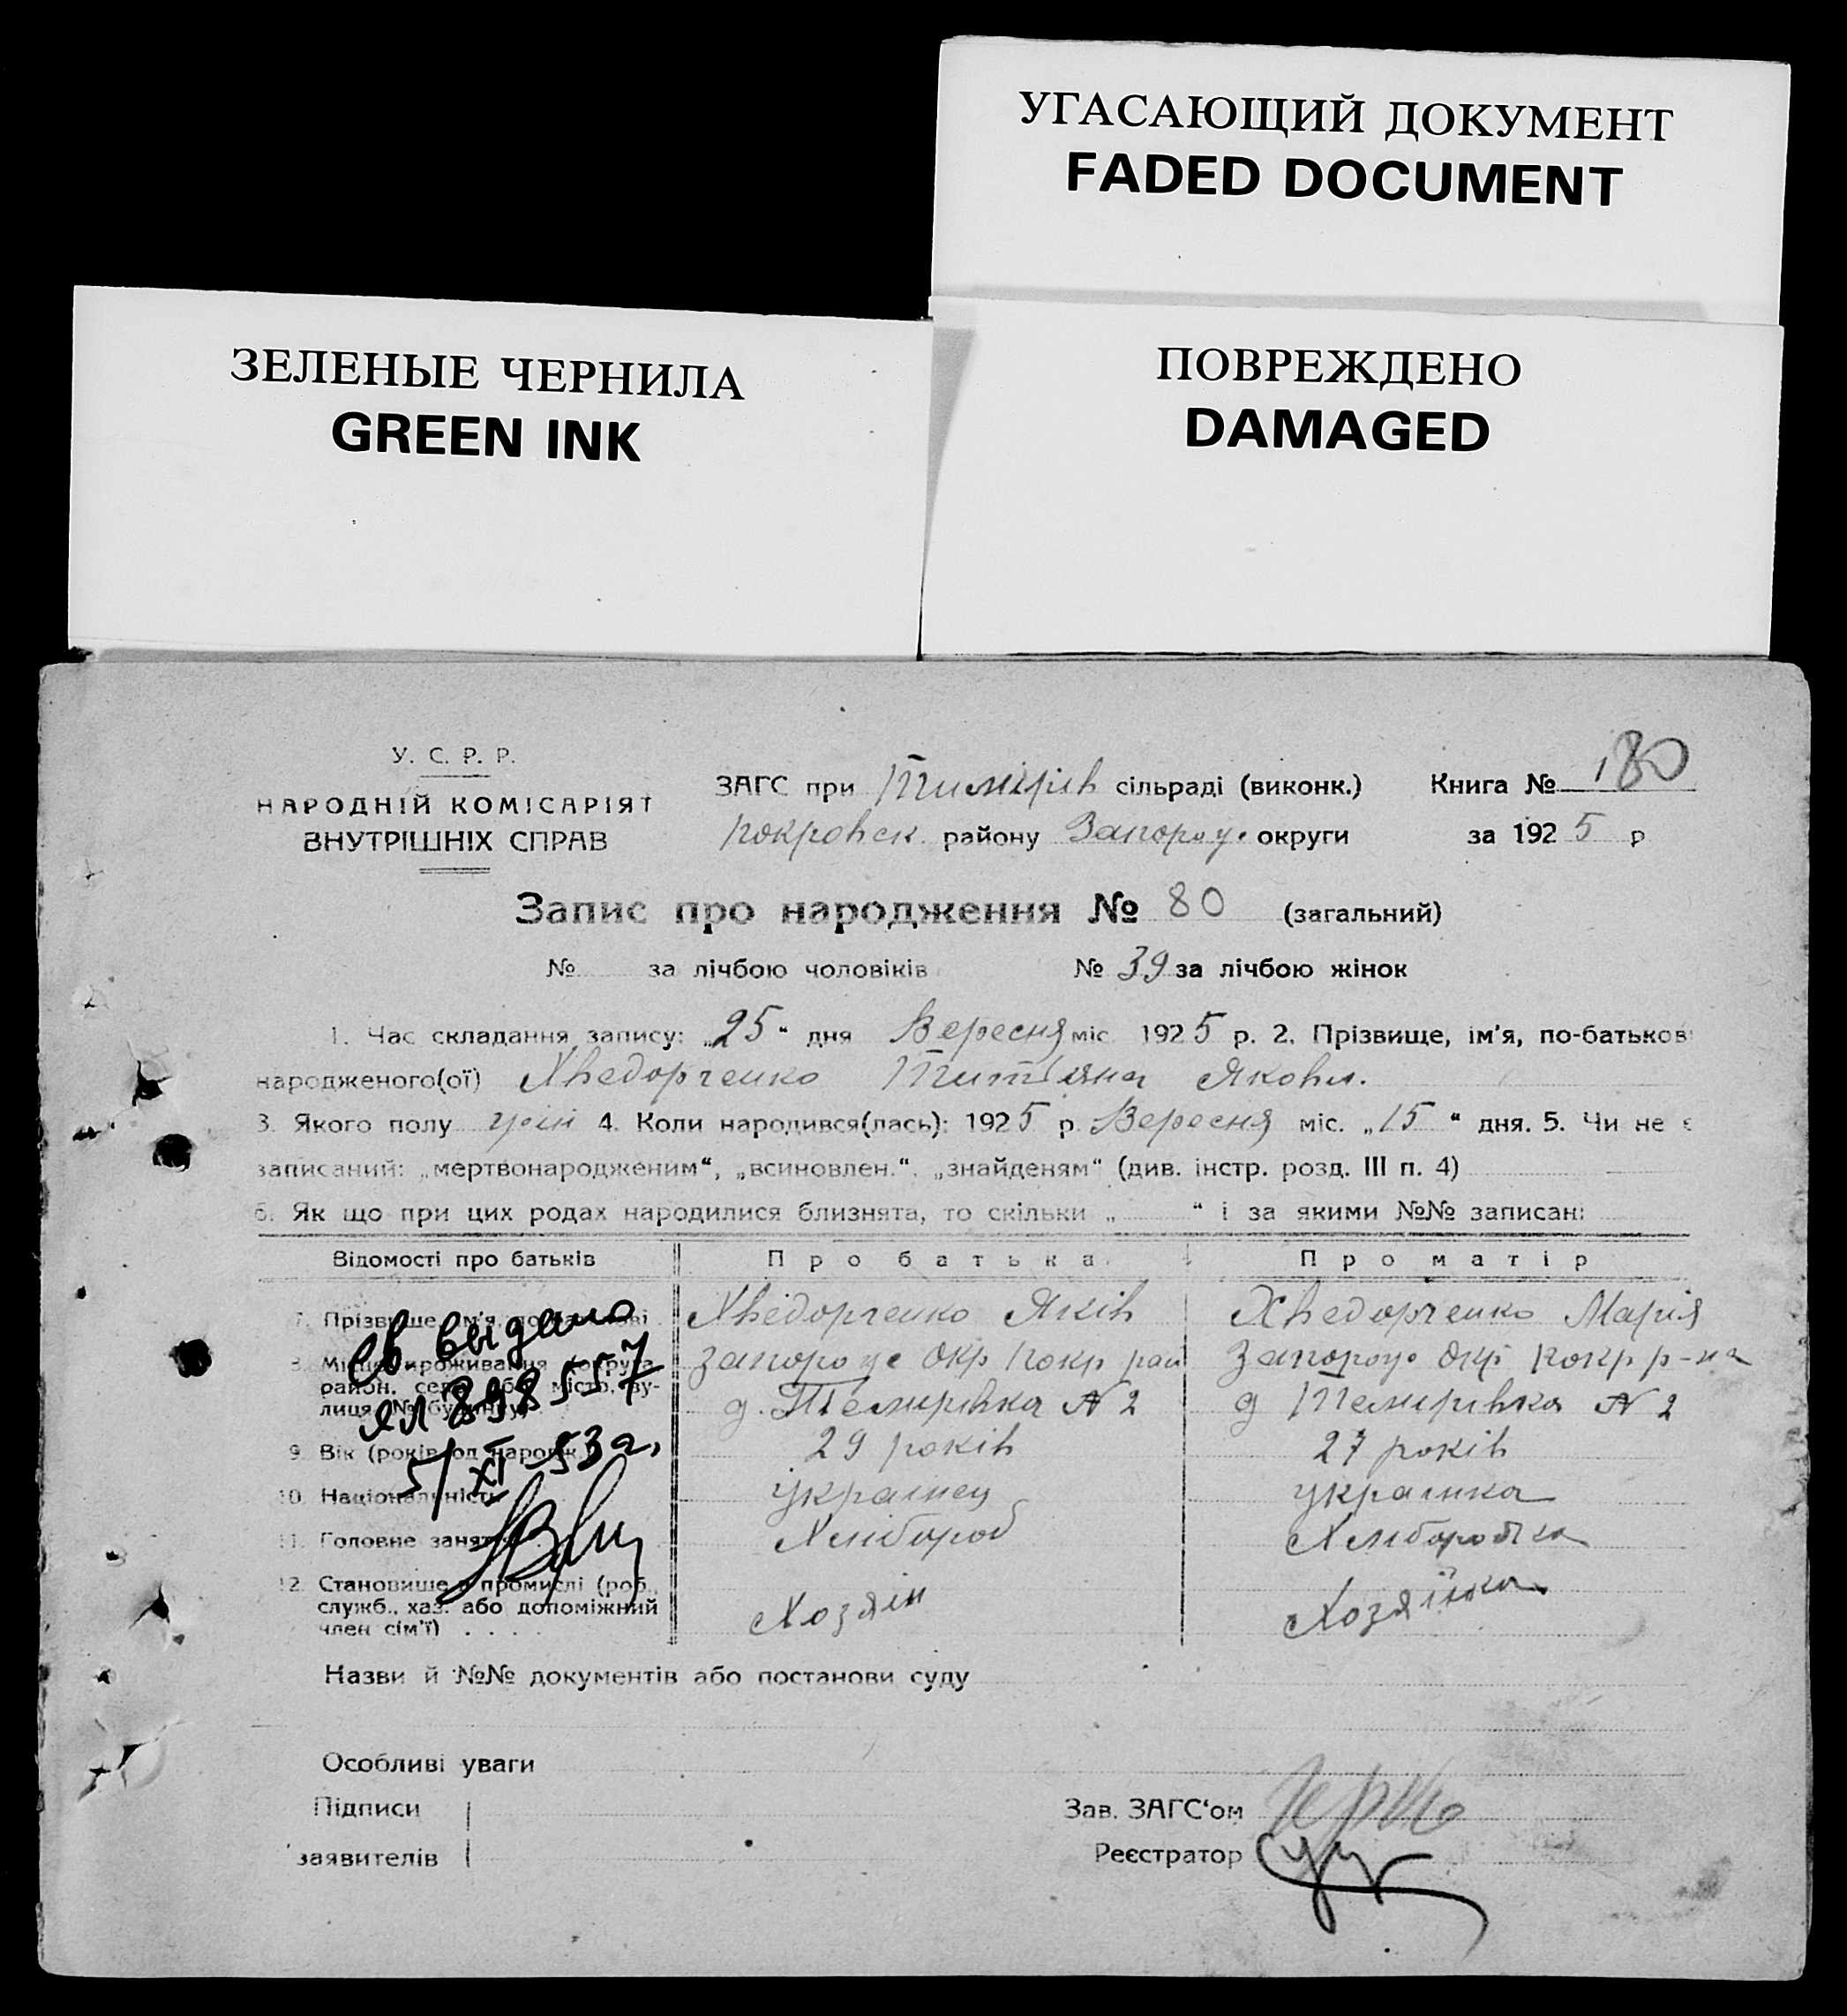 УГАСАЮЩИЙ ДОКУМЕНТ
FADED DOCUMENT
ЗЕЛЕНЫЕ ЧЕРНИЛА
GREEN INK
ПОВРЕЖДЕНО
DAMAGED
У. С. Р. Р.
НАРОДНІЙ КОМІСАРІЯТ
ВНУТРІШНІХ СПРАВ
ЗАГС при Тимірів сільраді (виконк.) Книга № 180
Покровск району Запороц. округи за 1925 р
Запис про народження № 80 (загальний)
№ за лічбою чоловіків № 39 за лічбою жінок
1. Час складання запису: „25“ дня Вересня міс 1925 р. 2. Прізвище, ім'я, по-батькові
народженого(ої) Хведорченко Титяна Яковл.
3. Якого полу 4. Коли народився(лась): 1925 р. Вересня міс. „15“ дня. 5. Чи не є
записаний: „мертвонародженим“, „всиновлен.“, „знайденям“ (див. інстр. розд. III п. 4)
6. Як що при цих родах народилися близнята, то скільки „ “ і за якими №№ записані
Відомості про батьків Про батька Про матір
7. Прізвище, ім'я, по-батькові Хведорченко Яків Хведорченко Марія
8. Місце проживання (округа, Запороце Окр Покр рай Запороце Окр Покр р-на
район, село або місто, ву- д. Темирівка № 2 д Темирівка № 2
лиця, № будинку)
9. Вік (років од народж.) 29 років 27 років
10. Національність українец українка
11. Головне заняття Хлібороб Хлиборобка
12. Становище в промислі (роб.,
служб., хаз. або допоміжний Хозяін Хозяінка
член сім'ї) . . . .
Св выдано
ЯЛ 898557
5/XI-53г.
Назви й №№ документів або постанови суду
Особливі уваги
Підписи Зав. ЗАГС'ом
заявителів Реєстратор